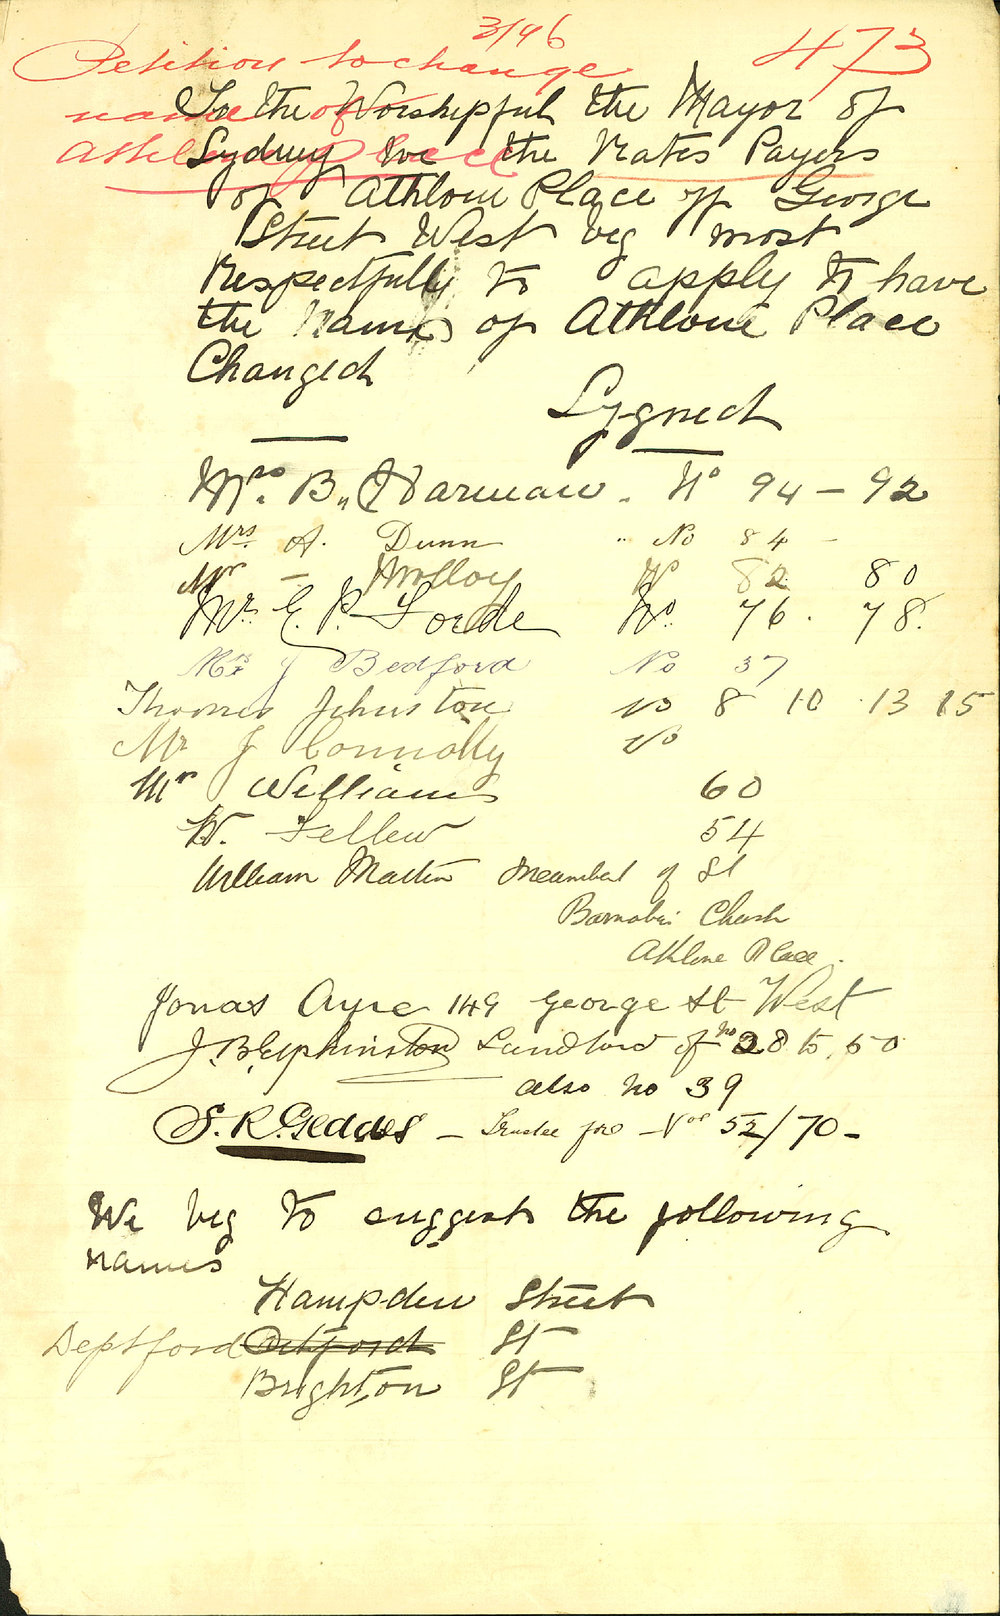 3/96
473
Petition to change
name of
Athlone Place
To the Worshipful the Mayor of
Sydney We the Rates Payers
of Athlone Place off George
Street West beg most
Respectfully to apply to have
the Name of Athlone Place
Changed
Sygned
Mrs. B. Harman. No 94 - 92
Mrs. A. Dunn " No 84 -
Mr - Molloy No 82 80
Mr. E. P. Forde No. 76. 78.
J Bedford No 37
Thomas Johnston No 8 10 13 15
Mr J Connolly No
Mr Williams 60
W. Fellew 54
William Martin Incumbent of St
Barnabas Church
Athlone Place.
Jonas Ayre 149 George St West
J. B. Elphinston Landlord of No 28 to 50
also No 39
S. R. Geddes - Trustee for Nos 52/70 -
We beg to suggest the following
names
Hampden Street
Deptford Detford St
Brighton St